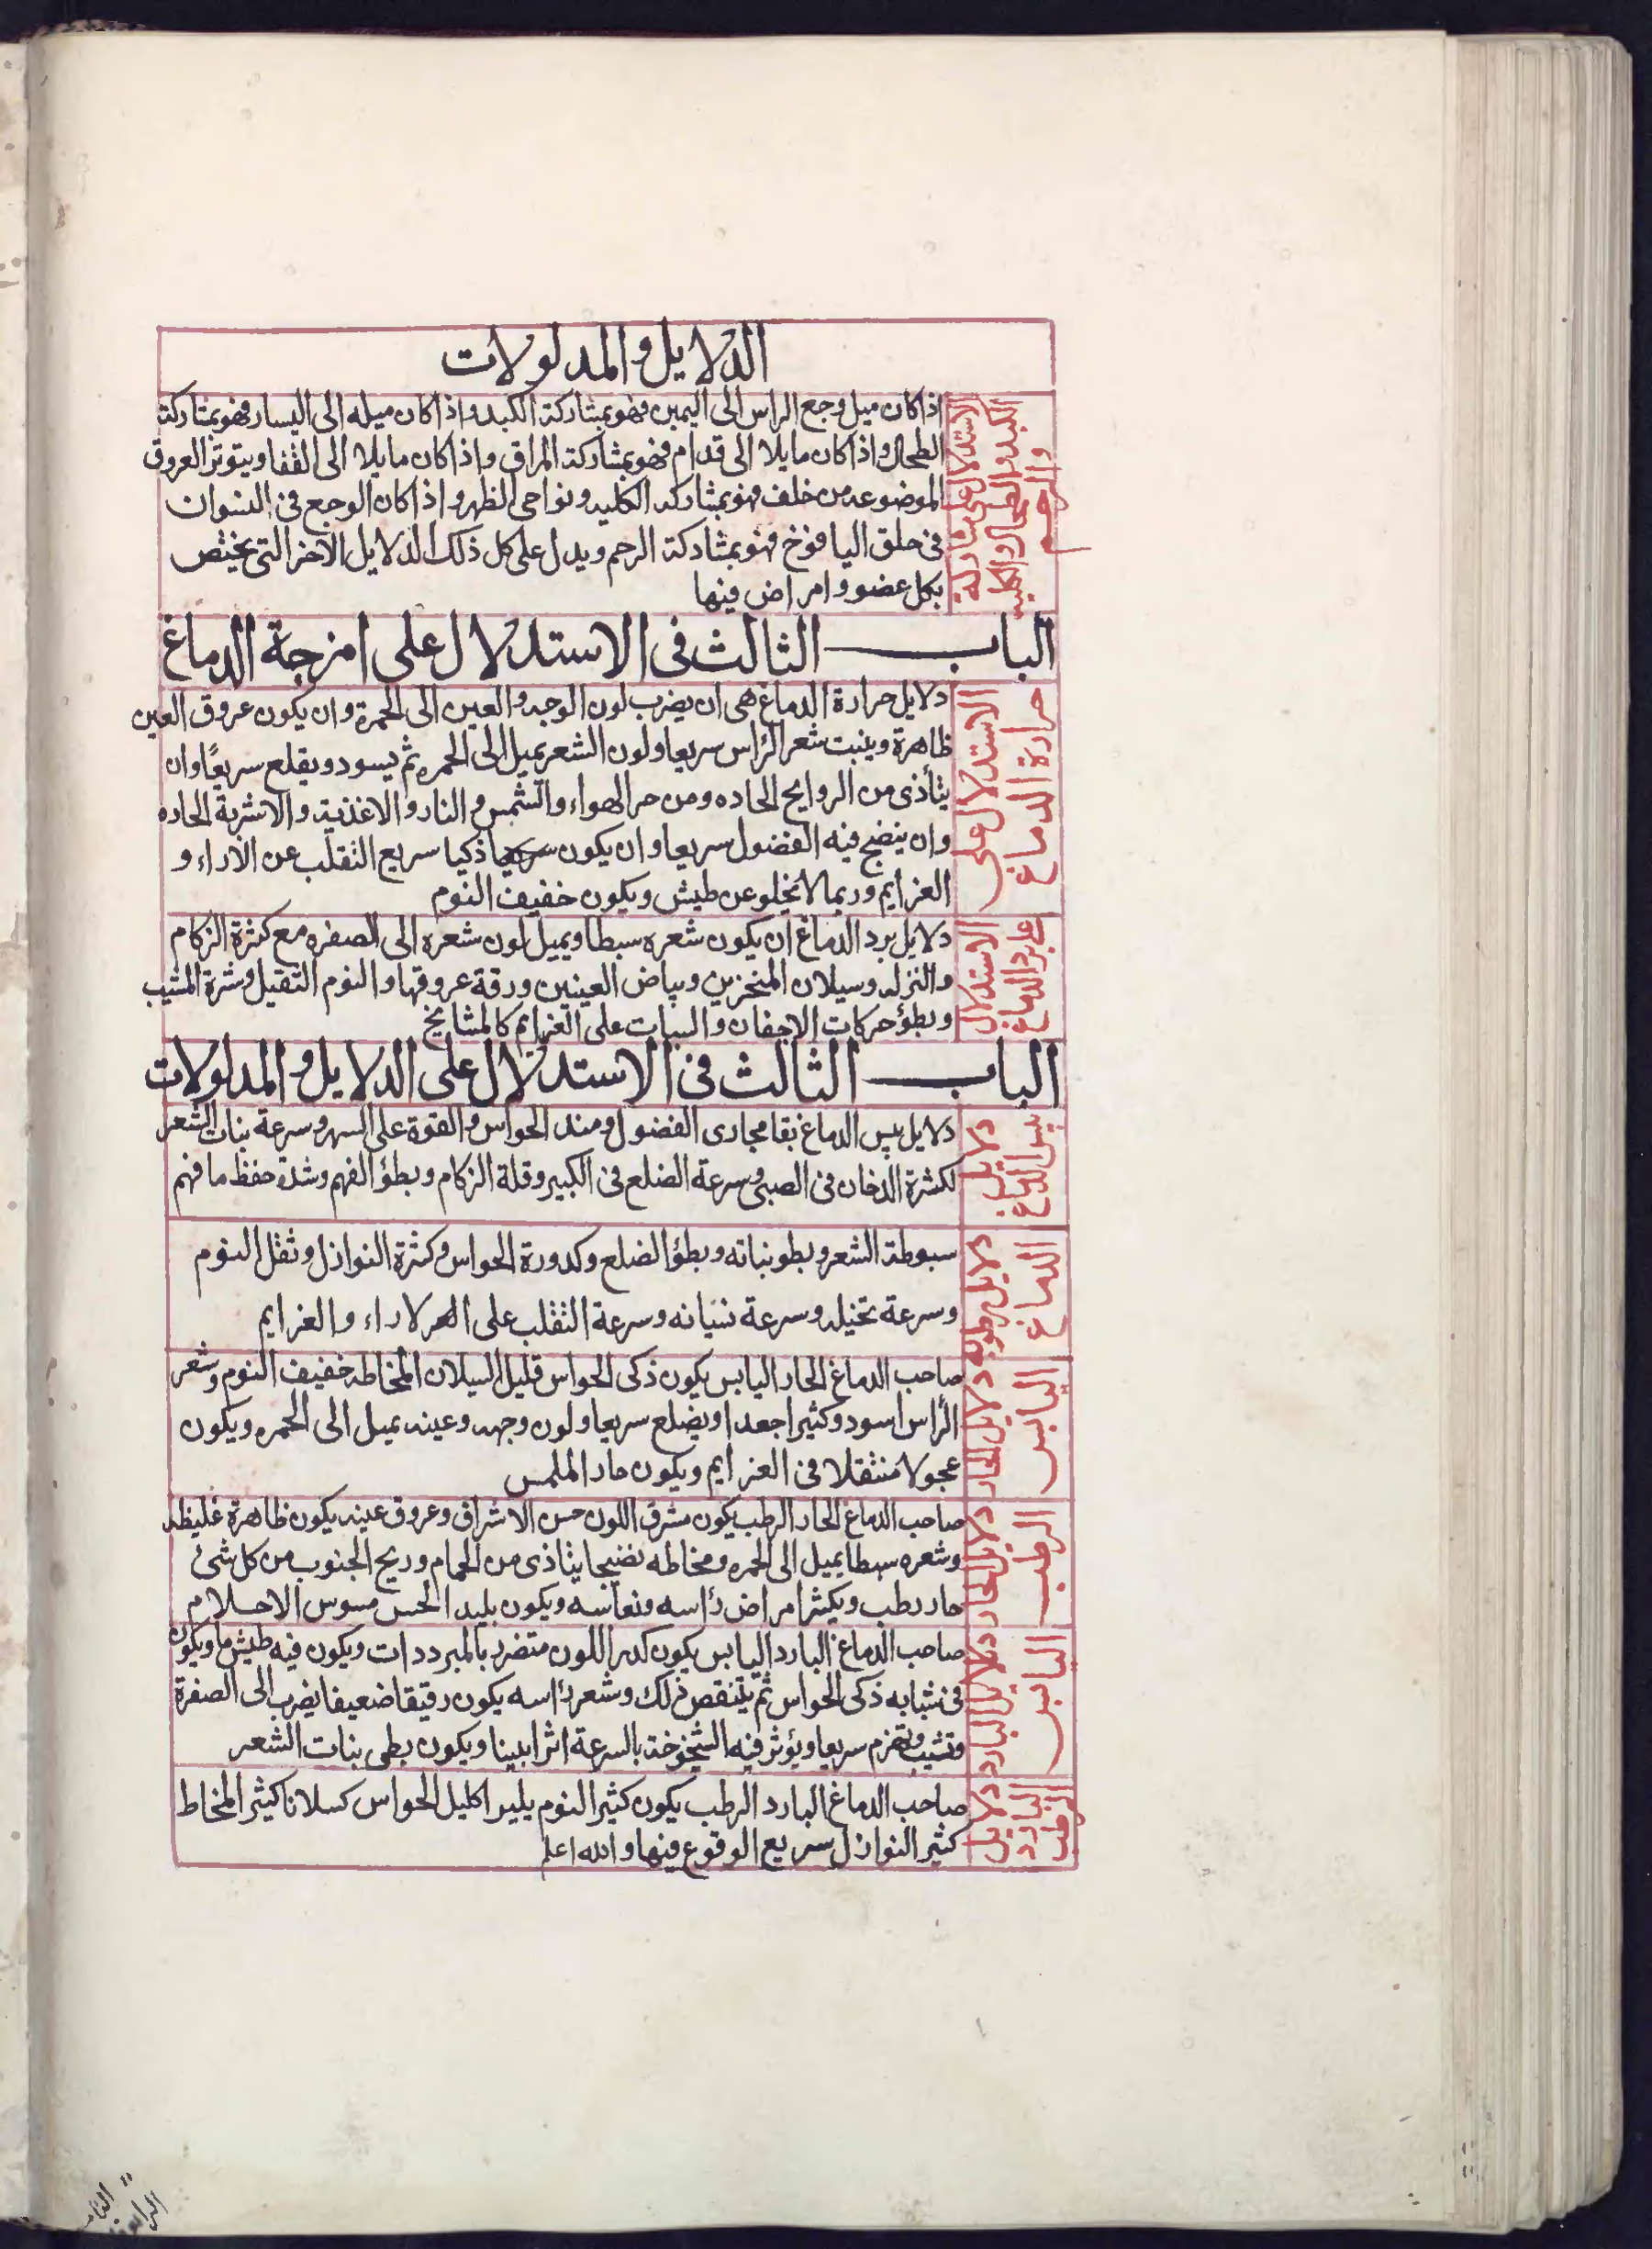 الدلايل والمدلولات
الاستدلال على مشاركة
الكبد والطحال والكليه
والرحم
اذا كان ميل وجع الراس الى اليمين فهو بمشاركة الكبد واذا كان ميله الى اليسار فهو بمشاركة
الطحال واذا كان مايلا الى قدام فهو بمشاركة المراق واذا كان مايلا الى القفا ويتوتر العروق
الموضوعه من خلف فهو بمشاركه الكليه ونواحى الظهر واذا كان الوجع فى النسوان
فى حلق اليافوخ فهو بمشاركة الرحم ويدل على كل ذلك الدلايل الاخر التى يختص
بكل عضو وامراض فيها
الباب الثالث فى الاستدلال على امزجة الدماغ
الاستدلال على
حرارة الدماغ
دلايل حرارة الدماغ هى ان يضرب لون الوجه والعين الى الحمرة وان يكون عروق العين
ظاهرة وينبت شعر الراس سريعا ولون الشعر يميل الى الحمره ثم يسود ويقلع سريعًا وان
يتأذى من الروايح الحاده ومن حر الهواء والشمس والنار والاغذية والاشربة الحاده
وان ينضج فيه الفضول سريعا وان يكون ذكيا سريع التقلب عن الاراء و
العزايم وربما لا يخلو عن طيش ويكون خفيف النوم
الاستدلال
على برد الدماغ
دلايل برد الدماغ ان يكون شعره سبطا ويميل لون شعره الى الصفره مع كثرة الزكام
والنزله وسيلان المنخرين وبياض العينين ورقة عروقها والنوم الثقيل وشرة المشيب
وبطؤ حركات الاجفان والسبات على العزايم كالمشايخ
الباب الثالث فى الاستدلال على الدلايل والمدلولات
دلايل
يبس الدماغ
دلايل يبس الدماغ بقا مجارى الفضول ومند الحواس والقوة على السهر وسرعة بنات الشعر
لكثرة الدخان فى الصبى وسرعة الضلع فى الكبير وقلة الزكام وبطؤ الفهم وشدة حفظ ما فهم
دلايل رطوبه
الدماغ
سبوطة الشعر وبطو نباته وبطؤ الضلع وكدورة الحواس وكثرة النوازل وثقل النوم
وسرعة تخيله وسرعة نسيانه وسرعة التقلب على الاراء والعزايم
دلايل الحار
اليابس
صاحب الدماغ الحار اليابس يكون ذكى الحواس قليل السيلان المخاطه خفيف النوم وشعر
الرأس اسود وكثيرا جعدا ويضلع سريعا ولون وجهه وعينه يميل الى الحمره ويكون
عجولا متنقلا فى العزايم ويكون حار الملمس
دلايل الحار
الرطب
صاحب الدماغ الحار الرطب يكون مشرق اللون حسن الاشراق وعروق عينه يكون ظاهرة غليظه
وشعره سبطا يميل الى الحمره ومخاطه نضيجا يتاذى من الحمام وريح الجنوب من كل شئ
حار رطب ويكثر امراض رأسه ونعاسه ويكون بليد الحس مسوس الاحلام
دلايل البارد
اليابس
صاحب الدماغ البارد اليابس يكون كدر اللون متضرر بالمبردات ويكون فيه طيش ما ويكون
فى شبابه ذكى الحواس ثم يتنقص ذلك وشعر رأسه يكون رقيقا ضعيفا يضرب الى الصفرة
وتشيب وتهرم سريعا ويؤثر فيه الشيخوخة بالسرعة اثرا بينا ويكون بطى بنات الشعر
دلايل
البارد
الرطب
صاحب الدماغ البارد الرطب يكون كثير النوم بليدا كليل الحواس كسلانا كثير المخاط
كثير النوازل سريع الوقوع فيها والله اعلم